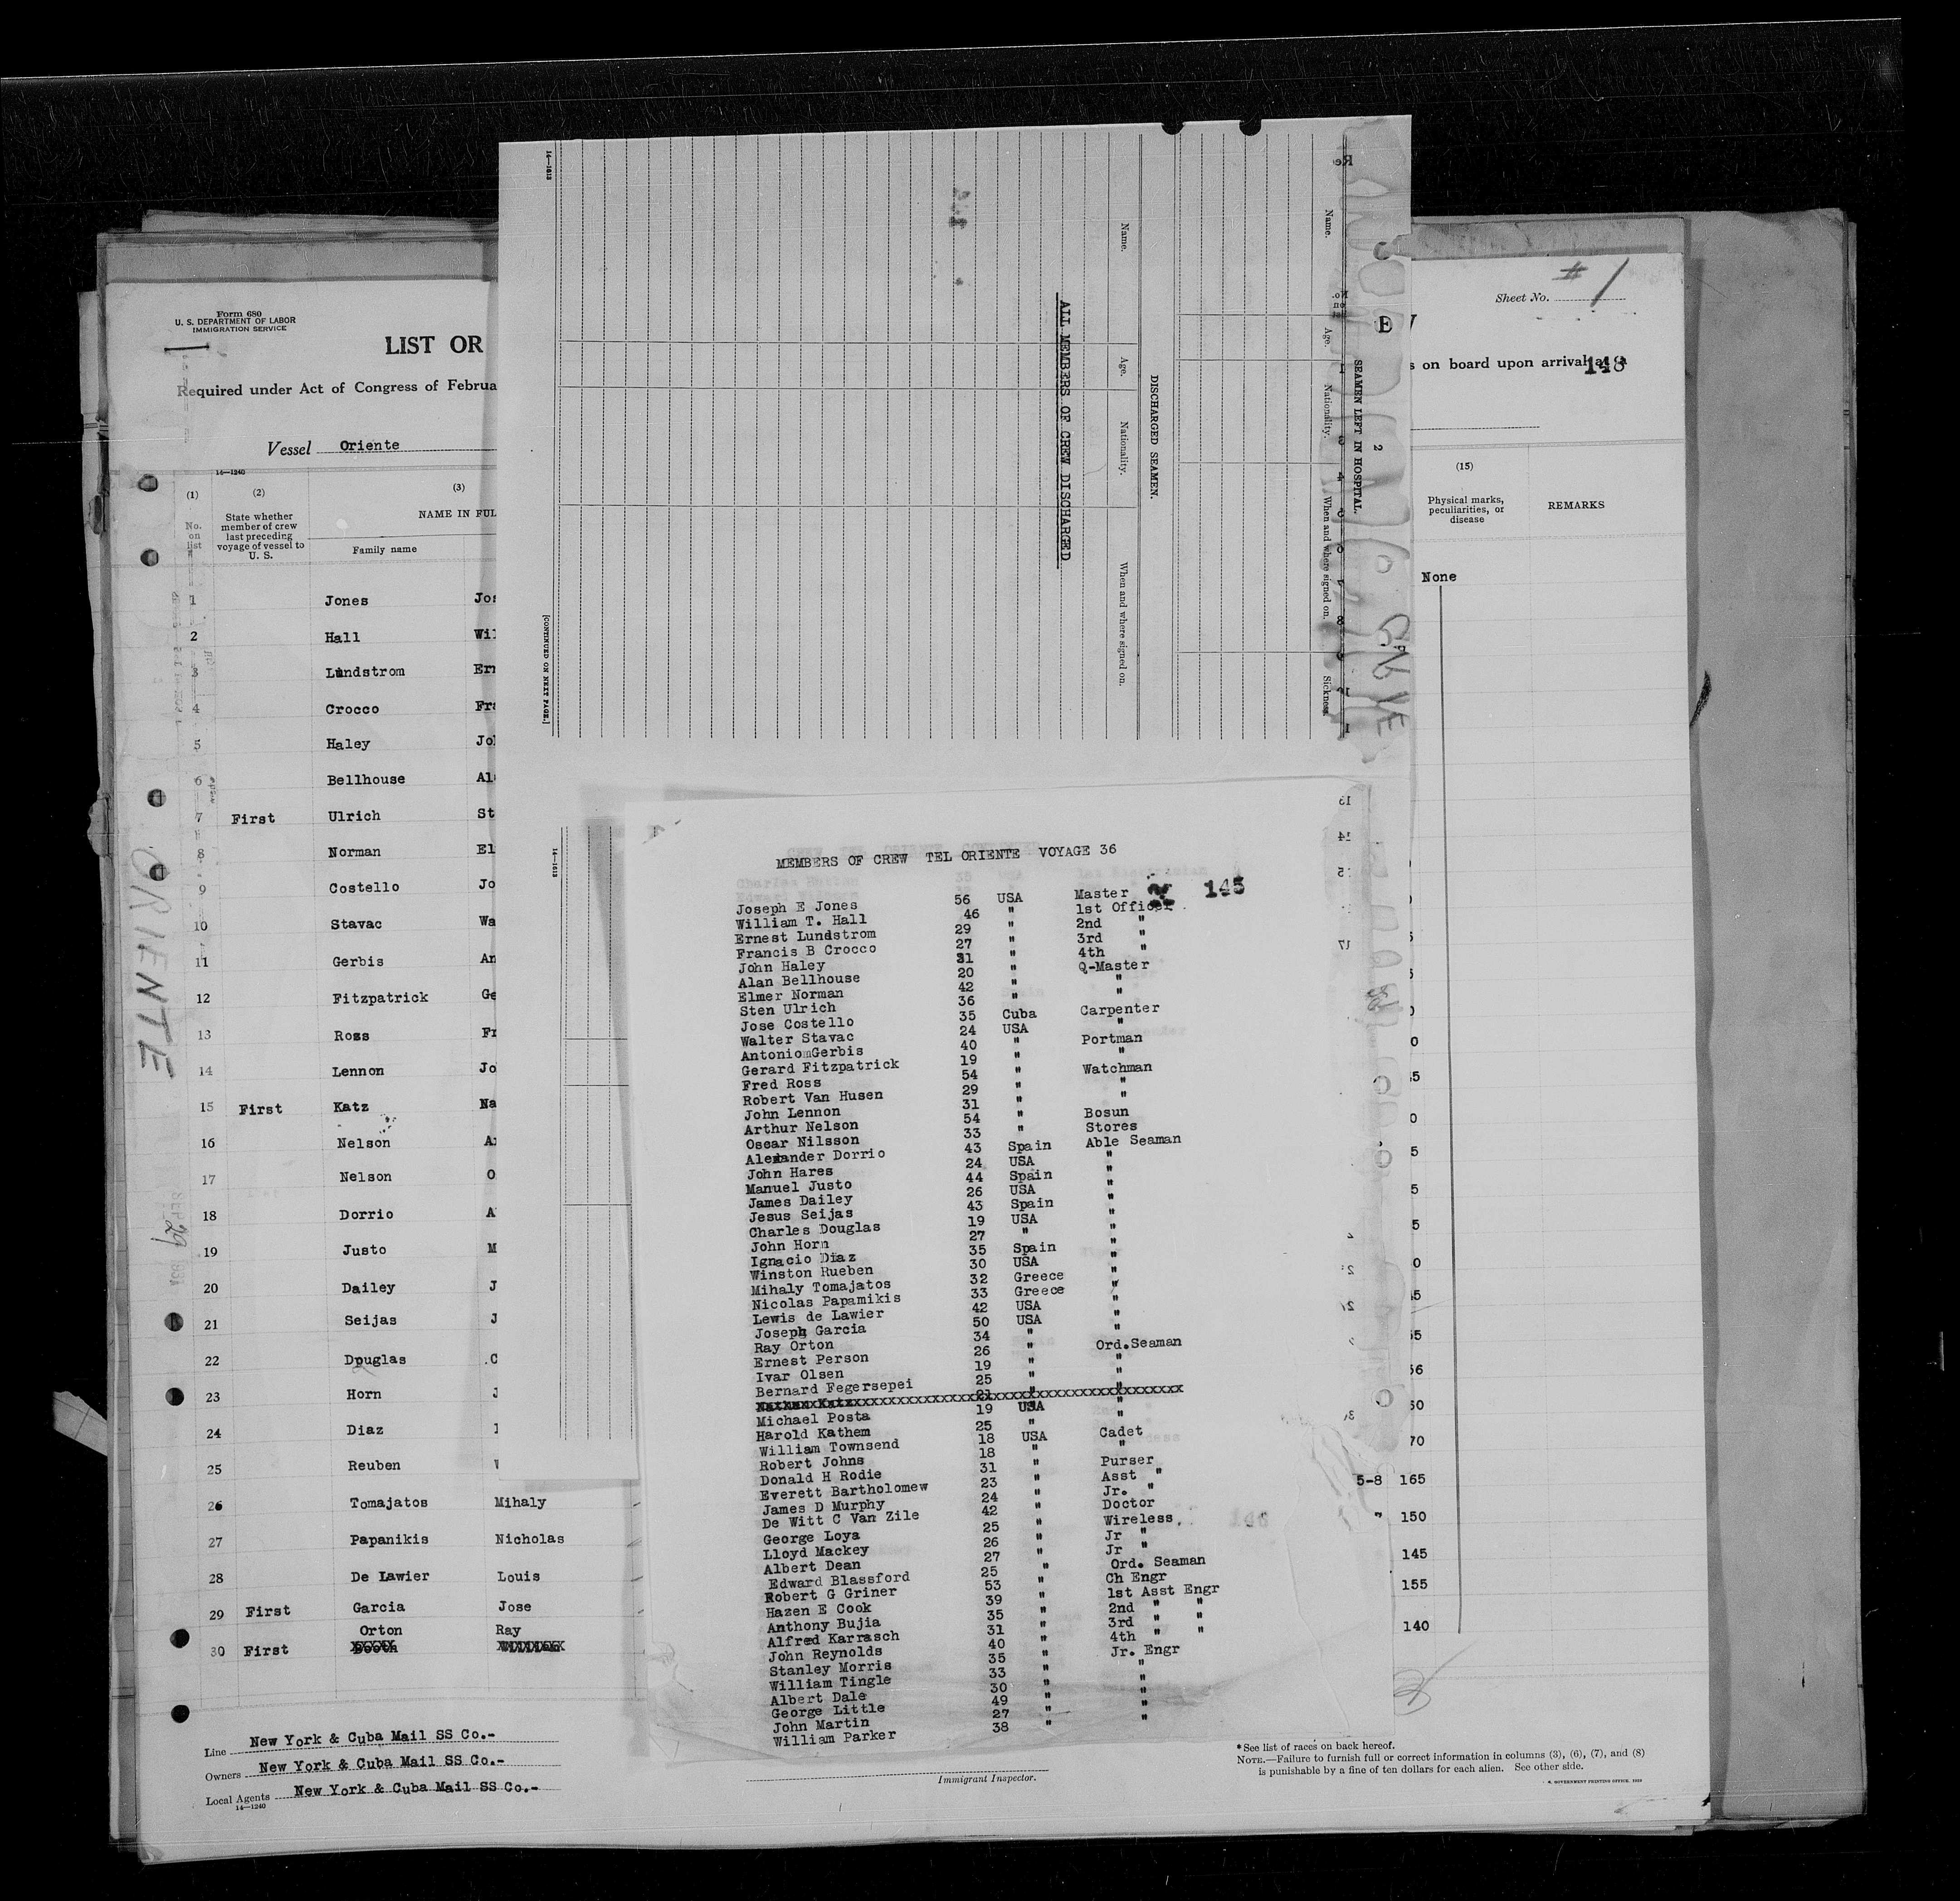 Form 680
U. S. DEPARTMENT OF LABOR
IMMIGRATION SERVICE
LIST OR
Required under Act of Congress of Februa
Vessel Oriente
Sheet No. # 1
s on board upon arrival at a
148
14—1240
(1)
No. on list
(2)
State whether member of crew last preceding voyage of vessel to U. S.
(3)
NAME IN FUL
Family name
(15)
Physical marks, peculiarities, or disease
REMARKS
None
1 Jones Jos
2 Hall Wil
3 Lundstrom Ern
4 Crocco Fra
5 Haley Joh
6 Bellhouse Al
7 First Ulrich St
8 Norman El
9 Costello Jo
10 Stavac Wa
11 Gerbis An
12 Fitzpatrick Ge
13 Ross Fr
14 Lennon Jo
15 First Katz Na
16 Nelson A
17 Nelson O
18 Dorrio A
19 Justo M
20 Dailey J
21 Seijas J
22 Douglas C
23 Horn J
24 Diaz
25 Reuben
26 Tomajatos Mihaly
27 Papanikis Nicholas
28 De Lawier Louis
29 First Garcia Jose
Orton Ray
30 First
5-8 165
150
145
155
140
Line New York & Cuba Mail SS Co.-
Owners New York & Cuba Mail SS Co.-
Local Agents New York & Cuba Mail SS Co.-
14—1240
Immigrant Inspector.
*See list of races on back hereof.
NOTE.—Failure to furnish full or correct information in columns (3), (6), (7), and (8)
is punishable by a fine of ten dollars for each alien. See other side.
ORIENTE
SEAMEN LEFT IN HOSPITAL.
Name. Age. Nationality. When and where signed on. Sickness.
DISCHARGED SEAMEN.
Name. Age. Nationality. When and where signed on.
ALL MEMBERS OF CREW DISCHARGED
14—1613
[CONTINUED ON NEXT PAGE.]
14—1613
MEMBERS OF CREW TEL ORIENTE VOYAGE 36
145
Joseph E Jones 56 USA Master
William T. Hall 46 " 1st Officer
Ernest Lundstrom 29 " 2nd "
Francis B Crocco 27 " 3rd "
John Haley 31 " 4th "
Alan Bellhouse 20 " Q-Master
Elmer Norman 42 " "
Sten Ulrich 36 " "
Jose Costello 35 Cuba Carpenter
Walter Stavac 24 USA "
Antonio Gerbis 40 " Portman
Gerard Fitzpatrick 19 " "
Fred Ross 54 " Watchman
Robert Van Husen 29 " "
John Lennon 31 " "
Arthur Nelson 54 " Bosun
Oscar Nilsson 33 " Stores
Alexander Dorrio 43 Spain Able Seaman
John Hares 24 USA "
Manuel Justo 44 Spain "
James Dailey 26 USA "
Jesus Seijas 43 Spain "
Charles Douglas 19 USA "
John Horn 27 " "
Ignacio Diaz 35 Spain "
Winston Rueben 30 USA "
Mihaly Tomajatos 32 Greece "
Nicolas Papamikis 33 Greece "
Lewis de Lawier 42 USA "
Joseph Garcia 50 USA "
Ray Orton 34 " "
Ernest Person 26 " Ord.Seaman
Ivar Olsen 19 " "
Bernard Fegersepei 25 " "
Nathan Katz 21 " "
Michael Posta 19 USA "
Harold Kathem 25 " "
William Townsend 18 USA Cadet
Robert Johns 18 " "
Donald H Rodie 31 " Purser
Everett Bartholomew 23 " Asst "
James D Murphy 24 " Jr. "
De Witt C Van Zile 42 " Doctor
George Loya 25 " Wireless
Lloyd Mackey 26 " Jr "
Albert Dean 27 " Jr "
Edward Blassford 25 " Ord. Seaman
Robert G Griner 53 " Ch Engr
Hazen E Cook 39 " 1st Asst Engr
Anthony Bujia 35 " 2nd " "
Alfred Karrasch 31 " 3rd " "
John Reynolds 40 " 4th " "
Stanley Morris 35 " Jr. Engr
William Tingle 33 " "
Albert Dale 30 " "
George Little 49 " "
John Martin 27 " "
William Parker 38 " "